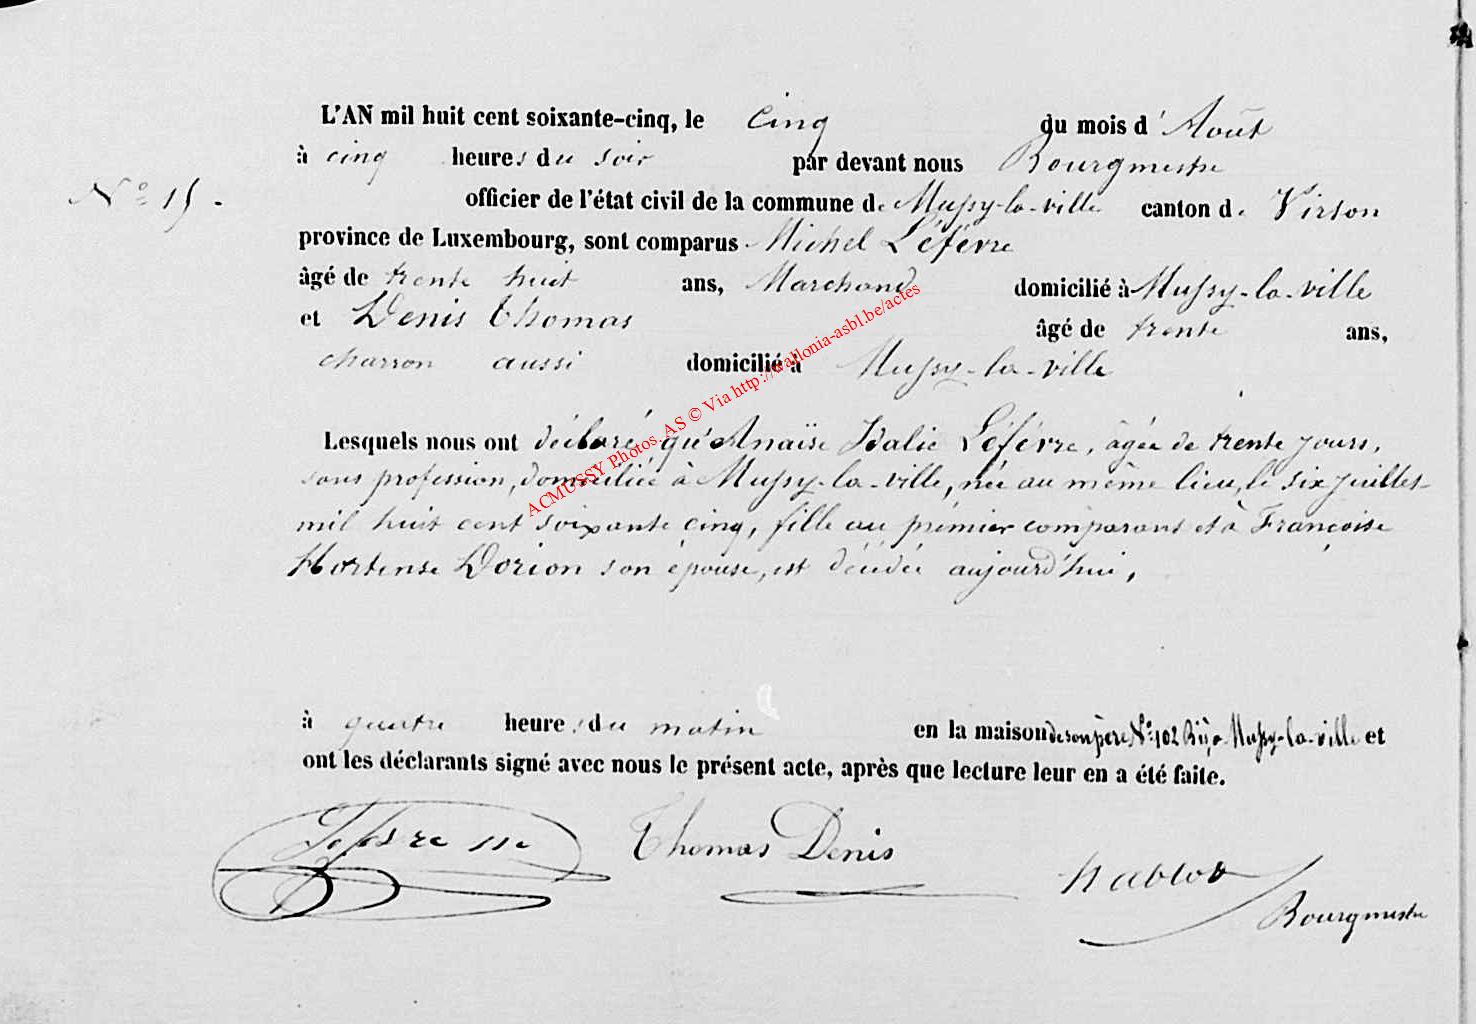 L'AN mil huit cent soixante-cinq, le cinq du mois d'Août
à cinq heures du soir par devant nous Bourgmestre
N° 15. officier de l'état civil de la commune de Mussy-la-ville canton de Virton
province de Luxembourg, sont comparus Michel Léfévre
âgé de trente huit ans, Marchand domicilié à Mussy-la-ville
et Denis Thomas âgé de trente ans,
charron aussi domicilié à Mussy-la-ville
Lesquels nous ont déclaré qu'Anaïse Idalie Léfévre, âgée de trente jours,
sans profession, domiciliée à Mussy-la-ville, née au même lieu, le six juillet
mil huit cent soixante cinq, fille au prémier comparant et à Françoise
Hortense Dorion son épouse, est décédée aujourd'hui,
à quatre heures du matin en la maison de son père N° 102 Bis, à Mussy-la-ville et
ont les déclarants signé avec nous le présent acte, après que lecture leur en a été faite.
Thomas Denis
Bourgmestre
ACMUSSY Photos. AS © Via http://wallonia-asbl.be/actes